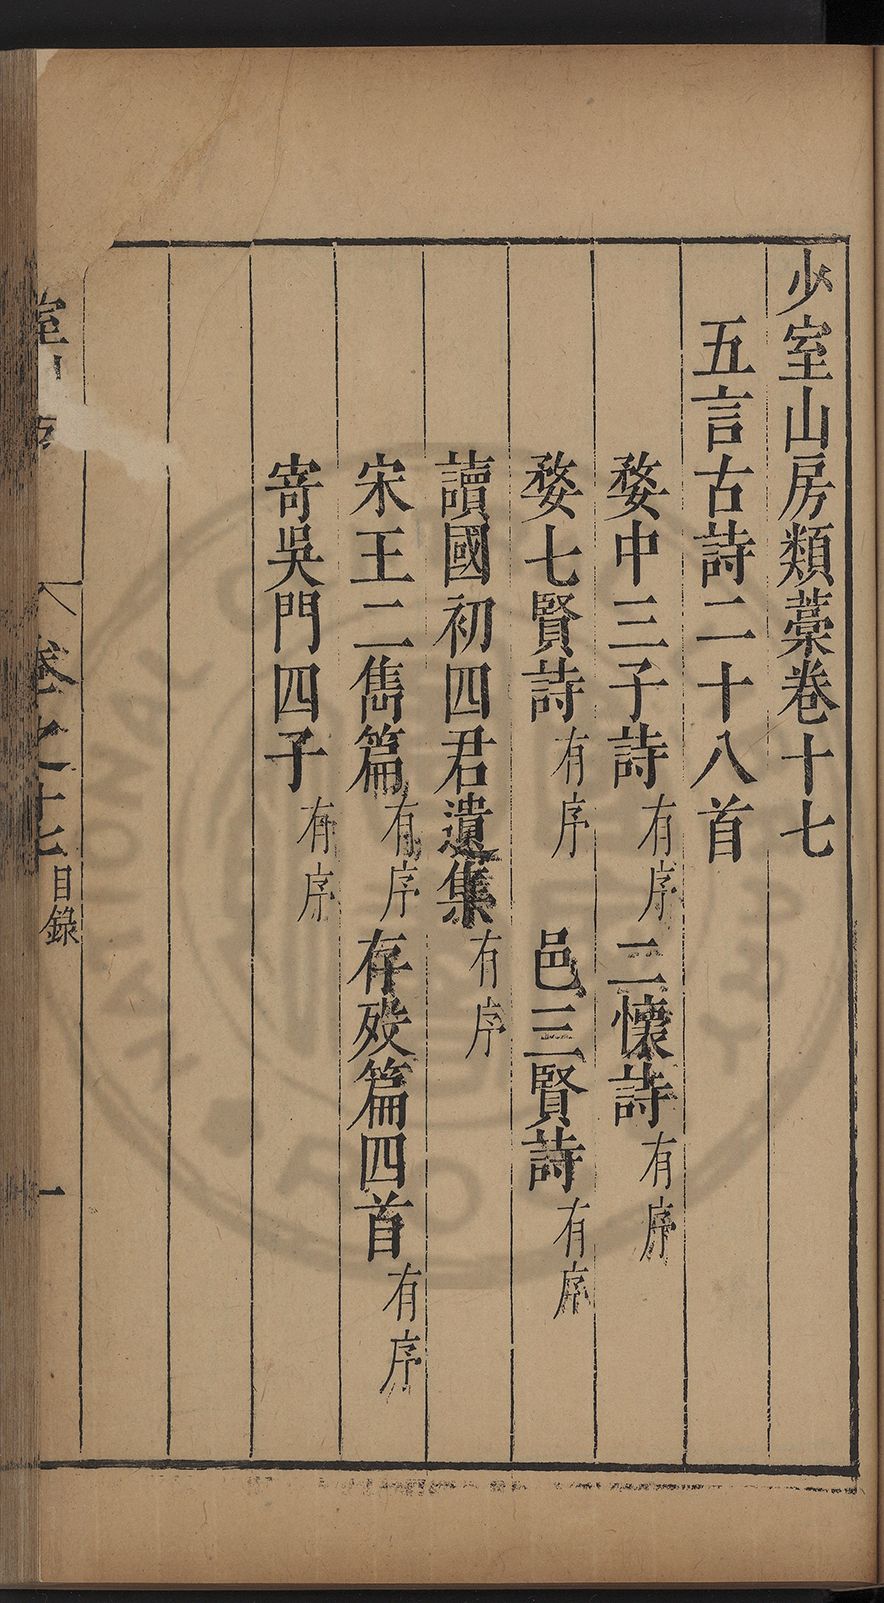 少室山房類藁卷十七
五言古詩二十八首
婺中三子詩有序 二懷詩有序
婺七賢詩有序 邑三賢詩有序
讀國初四君遺集有序
宋王二雋篇有序 存歿篇四首有序
寄吳門四子有序
室山 卷之十七 目錄 一